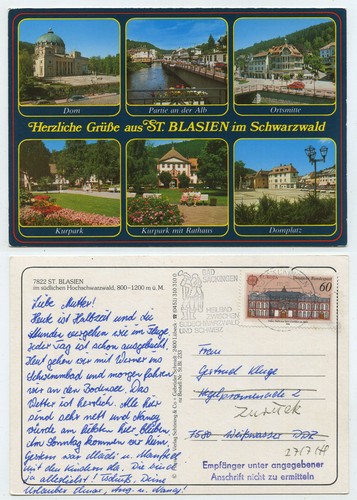 Dom
Partie an der Alb
Ortsmitte
Herzliche Grüße aus ST. BLASIEN im Schwarzwald
Kurpark
Kurpark mit Rathaus
Domplatz
7822 ST. BLASIEN
im südlichen Hochschwarzwald, 800–1200 m ü. M.
Liebe Mutter!
Heute ist Halbzeit und die
Stunden vergehen wie im Fluge,
jeder Tag ist schon ausgebucht!
Heut gehen wir mit Werner ins
Schwimmbad und morgen fahren
wir an den Bodensee. Das
Wetter ist herrlich. Alle hier
sind sehr nett und Nancy
würde am liebsten hier bleiben.
Am Sonntag kommen wir heim.
Gestern war Manfred
mit den Kindern da. Die sind
ja allerliebst! Tschüß, Deine
Urlauber Elmar, u. Nancy!
BAD
SÄCKINGEN
HEILBAD
ZWISCHEN
SÜDSCHWARZWALD
UND SCHWEIZ
60
Frau
Gertrud Kluge
Zurück
7580 Weißwasser DDR
Empfänger unter angegebener
Anschrift nicht zu ermitteln